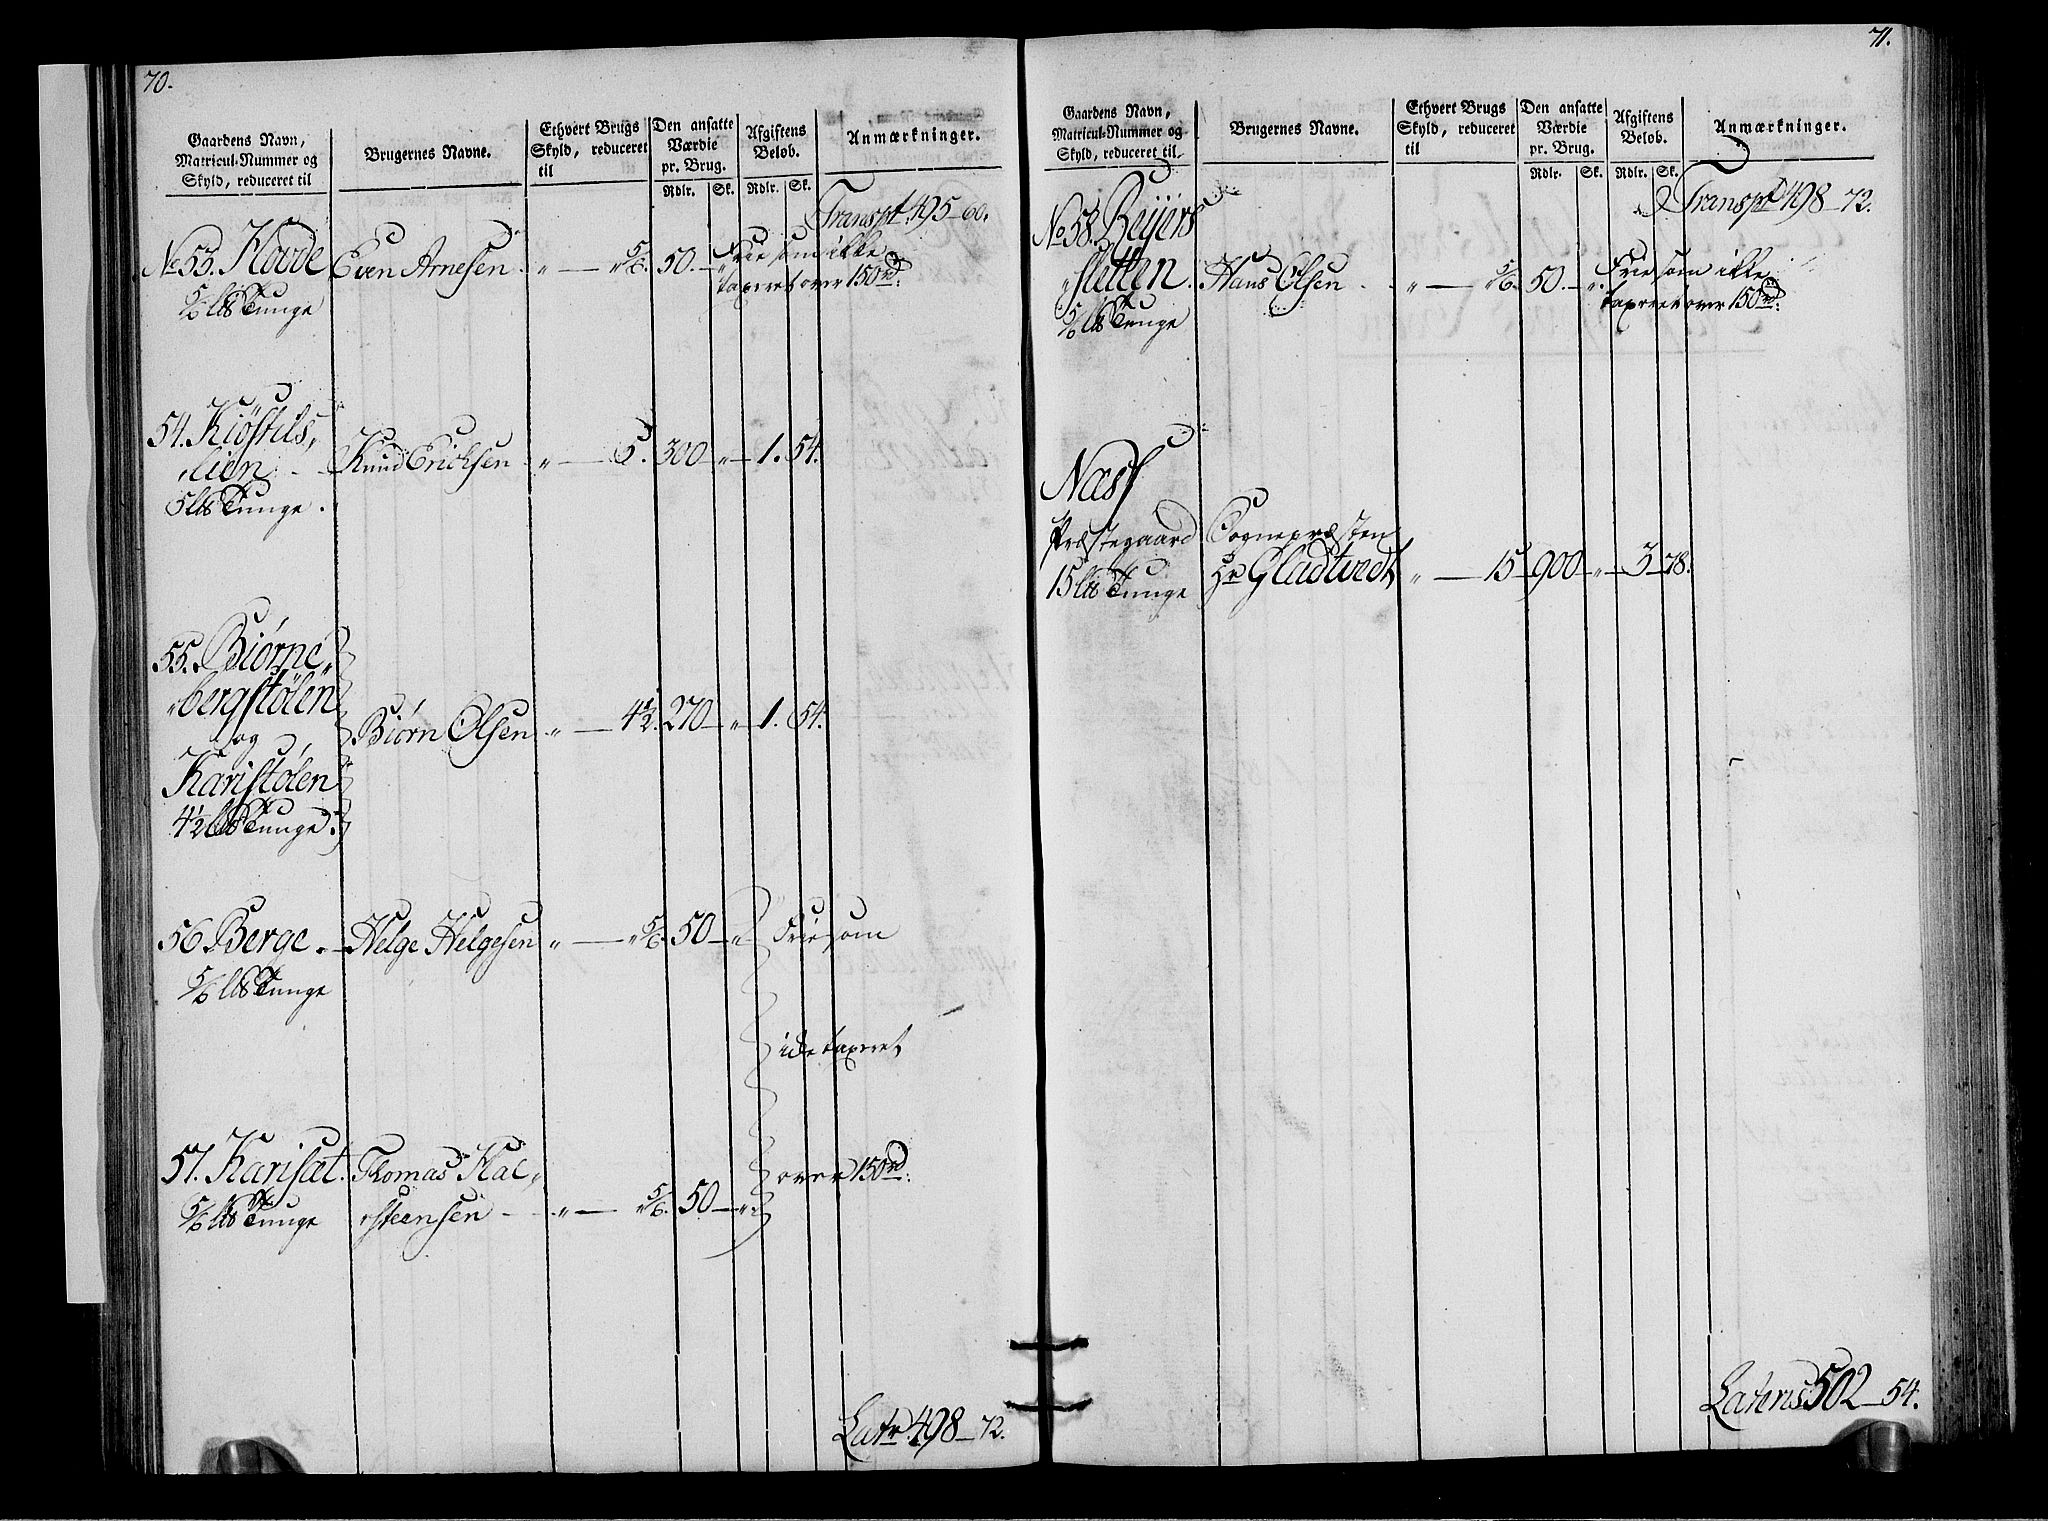 70.
Gaardens Navn,
Matricul-Nummer og
Skyld, reduceret til
Brugernes Navne.
Ethvert Brugs
Skyld, reduceret
til
Den ansatte
Værdie
pr. Brug.
Rdlr. Sk.
Afgiftens
Beløb.
Rdlr. Sk.
Anmærkninger.
Transpt. 495-60.
No 53. Hovde Even Arnesen. „ — „ 5/6. 50. — „ Frie som ikke
taxeret over 150rd.
5/6 lb Tunge
54. Kiøstils„
„lien Knud Ericksen „ — 5. 300 „ — 1. 54.
5 lb Tunge.
55. Biørne„
„bergstølen
og Biørn Olsen „ — 4½. 270 — „ — 1. 54.
Karistølen
4½ lb Tunge.
56. Berge. Helge Helgesen „ — „ 5/6. 50 — „ Frie som
5/6 lb Tunge
ike taxeret
57. Karisæt. Thomas Kal„
over 150rd.
5/6 lb Tunge „steensen — „ — „ 5/6. 50 — „
Latr. 498-72.
71.
Gaardens Navn,
Matricul-Nummer og
Skyld, reduceret til
Brugernes Navne.
Ethvert Brugs
Skyld, reduceret
til
Den ansatte
Værdie
pr. Brug.
Rdlr. Sk.
Afgiftens
Beløb.
Rdlr. Sk.
Anmærkninger.
Transpt 498-72.
No 58. Beijers
„sletten. Hans Olsen. „ — 5/6. 50. — „ Frie som ikke
taxeret over 150rd.
5/6 lb Tunge
Næss
Præstegaard Sognepræsten
15 lb Tunge Hr Gladtvedt „ — 15 — 900 — „ — 3 — 78.
Lateris 502 — 54.